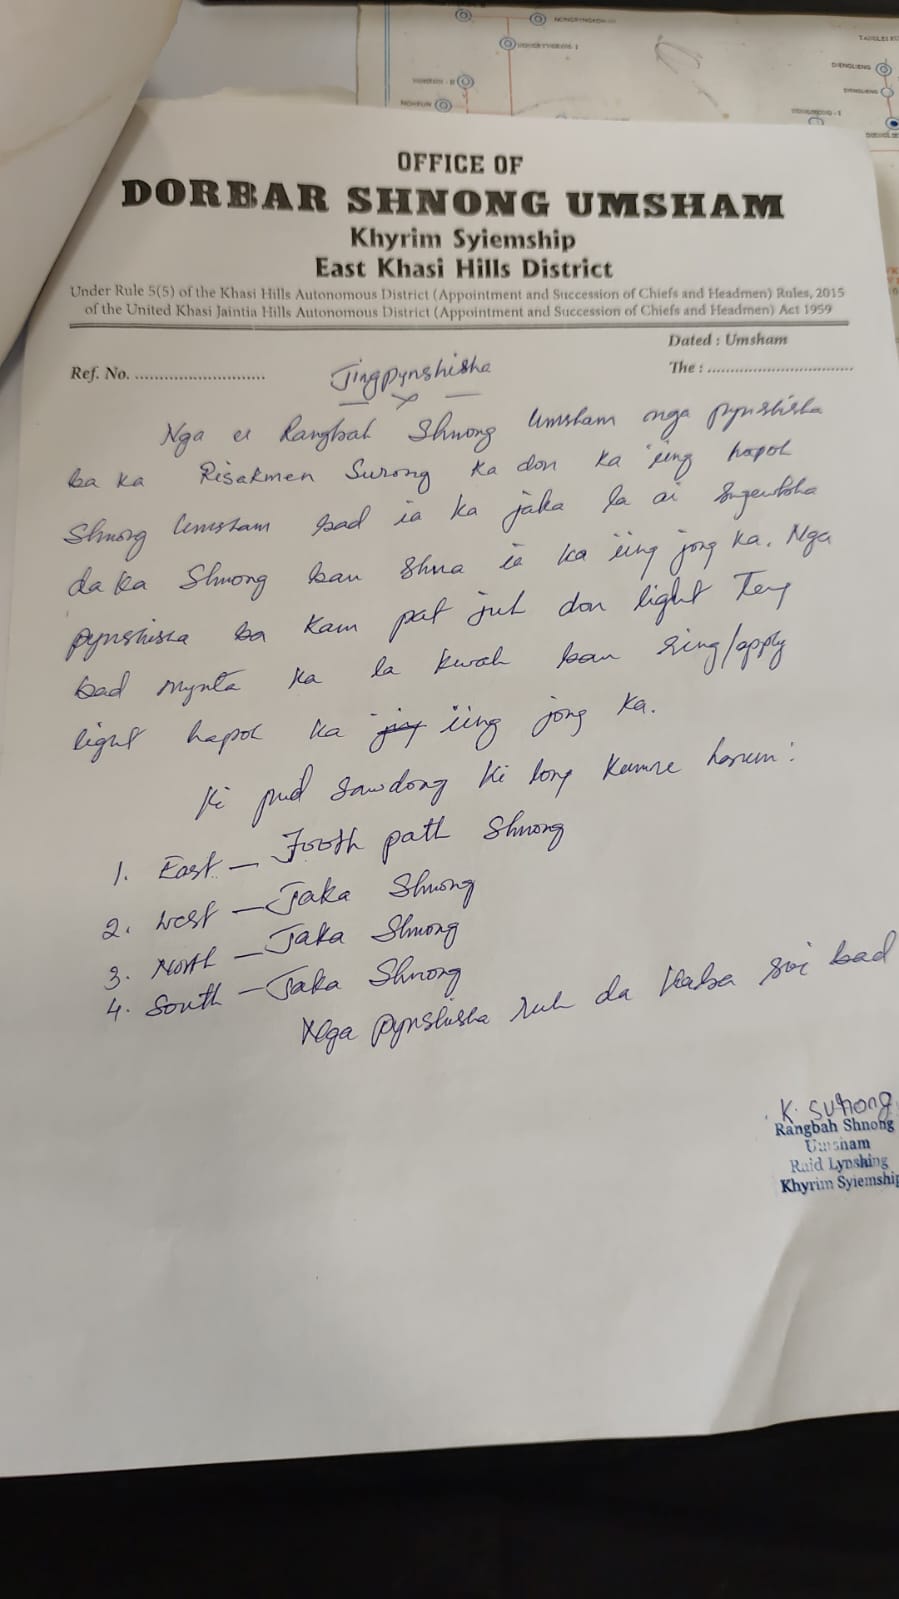 NONGRYNGKOH
NONGRYNGKOH-1
TANGLEI
DIENGLIENG
DIENGLIENG
NOHRON - II
NOHRON
OFFICE OF
DORBAR SHNONG UMSHAM
Khyrim Syiemship
East Khasi Hills District
Under Rule 5(5) of the Khasi Hills Autonomous District (Appointment and Succession of Chiefs and Headmen) Rules, 2015
of the United Khasi Jaintia Hills Autonomous District (Appointment and Succession of Chiefs and Headmen) Act 1959
Dated : Umsham
Ref. No. ............................
The : ................................
Jingpynshisha
Nga u Rangbah Shnong Umsham nga pynshisha
ba ka Risakmen Surong ka don ka ïing hapoh
Shnong Umsham bad ia ka jaka la ai
da ka Shnong ban shna ia ka iing jong ka. Nga
pynshisha ba kam pat juh don light Teng
bad mynta ka la kwah ban ring/apply
light hapoh ka iing jong ka.
Ki pud sawdong ki long kumne harum:
1. East - Footh path Shnong
2. West - Jaka Shnong
3. North - Jaka Shnong
4. South - Jaka Shnong
Nga pynshisha ruh da kaba soi bad
K. Surong
Rangbah Shnong
Umsham
Raid Lynshing
Khyrim Syiemship